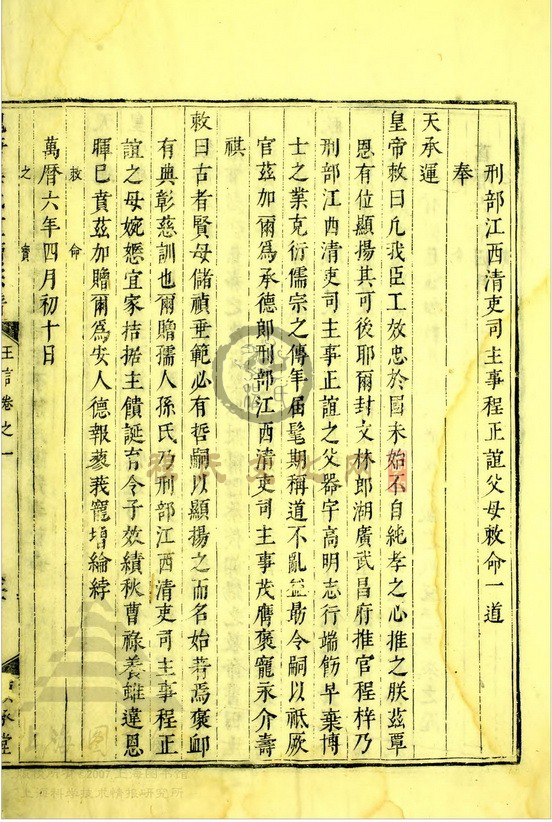 刑部江西清吏司主事程正誼父母敕命一道
奉
天承運
皇帝敕曰凡我臣工效忠於國未始不自純孝之心推之朕茲覃
恩有位顯揚其可後耶爾封文林郎湖廣武昌府推官程梓乃
刑部江西清吏司主事正誼之父器宇高明志行端飭早棄博
士之業克衍儒宗之傳年屆髦期稱道不亂益勗令嗣以祗厥
官茲加爾爲承德郎刑部江西清吏司主事茂膺褒寵永介壽
祺
敕曰古者賢母儲禎垂範必有哲嗣以顯揚之而名始著焉褒卹
有典彰慈訓也爾贈孺人孫氏乃刑部江西清吏司主事程正
誼之母婉嫕宜家拮据主饋誕育令子效績秋曹祿養雖違恩
暉巳賁茲加贈爾爲安人德報蓼莪寵增綸綍
萬曆六年四月初十日
敕命
之寶
王言卷之一